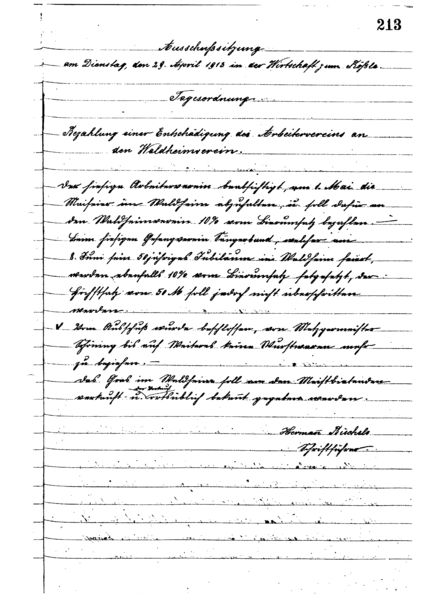 213
Ausschußsitzung
am Dienstag, den 29. April 1913 in der Wirtschaft zum Rößle.
Tagesordnung.
Bezahlung einer Entschädigung des Arbeitervereins an
den Waldheimverein.
Der hiesige Arbeiterverein beabsichtigt, am 1. Mai die
Maifeier im Waldheim abzuhalten, u. soll dafür an
den Waldheimverein 10% vom Bierumsatz bezahlen. —
Beim hiesigen Gesangverein Sängerbund, welcher am
8. Juni sein 50 jähriges Jubiläum im Waldheim feiert,
werden ebenfalls 10% vom Bierumsatz festgesetzt, der
Höchstsatz von 50 M soll jedoch nicht überschritten
werden.
Vom Ausschuß wurde beschlossen, von Metzgermeister
bis auf Weiteres keine Wurstwaren mehr
zu beziehen. —
Das Gras im Waldheim soll an den Meistbietenden
der Verkauf
verkauft u. ortsüblich bekannt gegeben werden.
Hermann
Schriftführer.